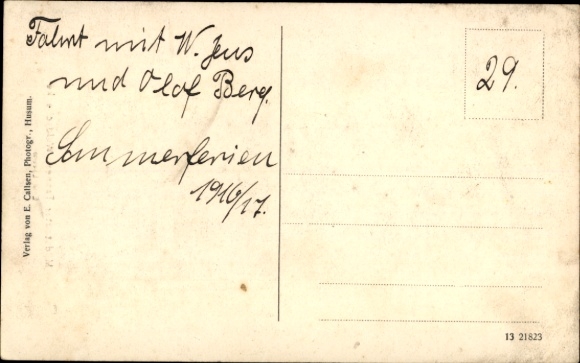 Fahrt mit W. Jens
und Olaf Berg.
Sommerferien
1916/17.
29.
Verlag von E. Callsen, Photogr., Husum.
13 21823